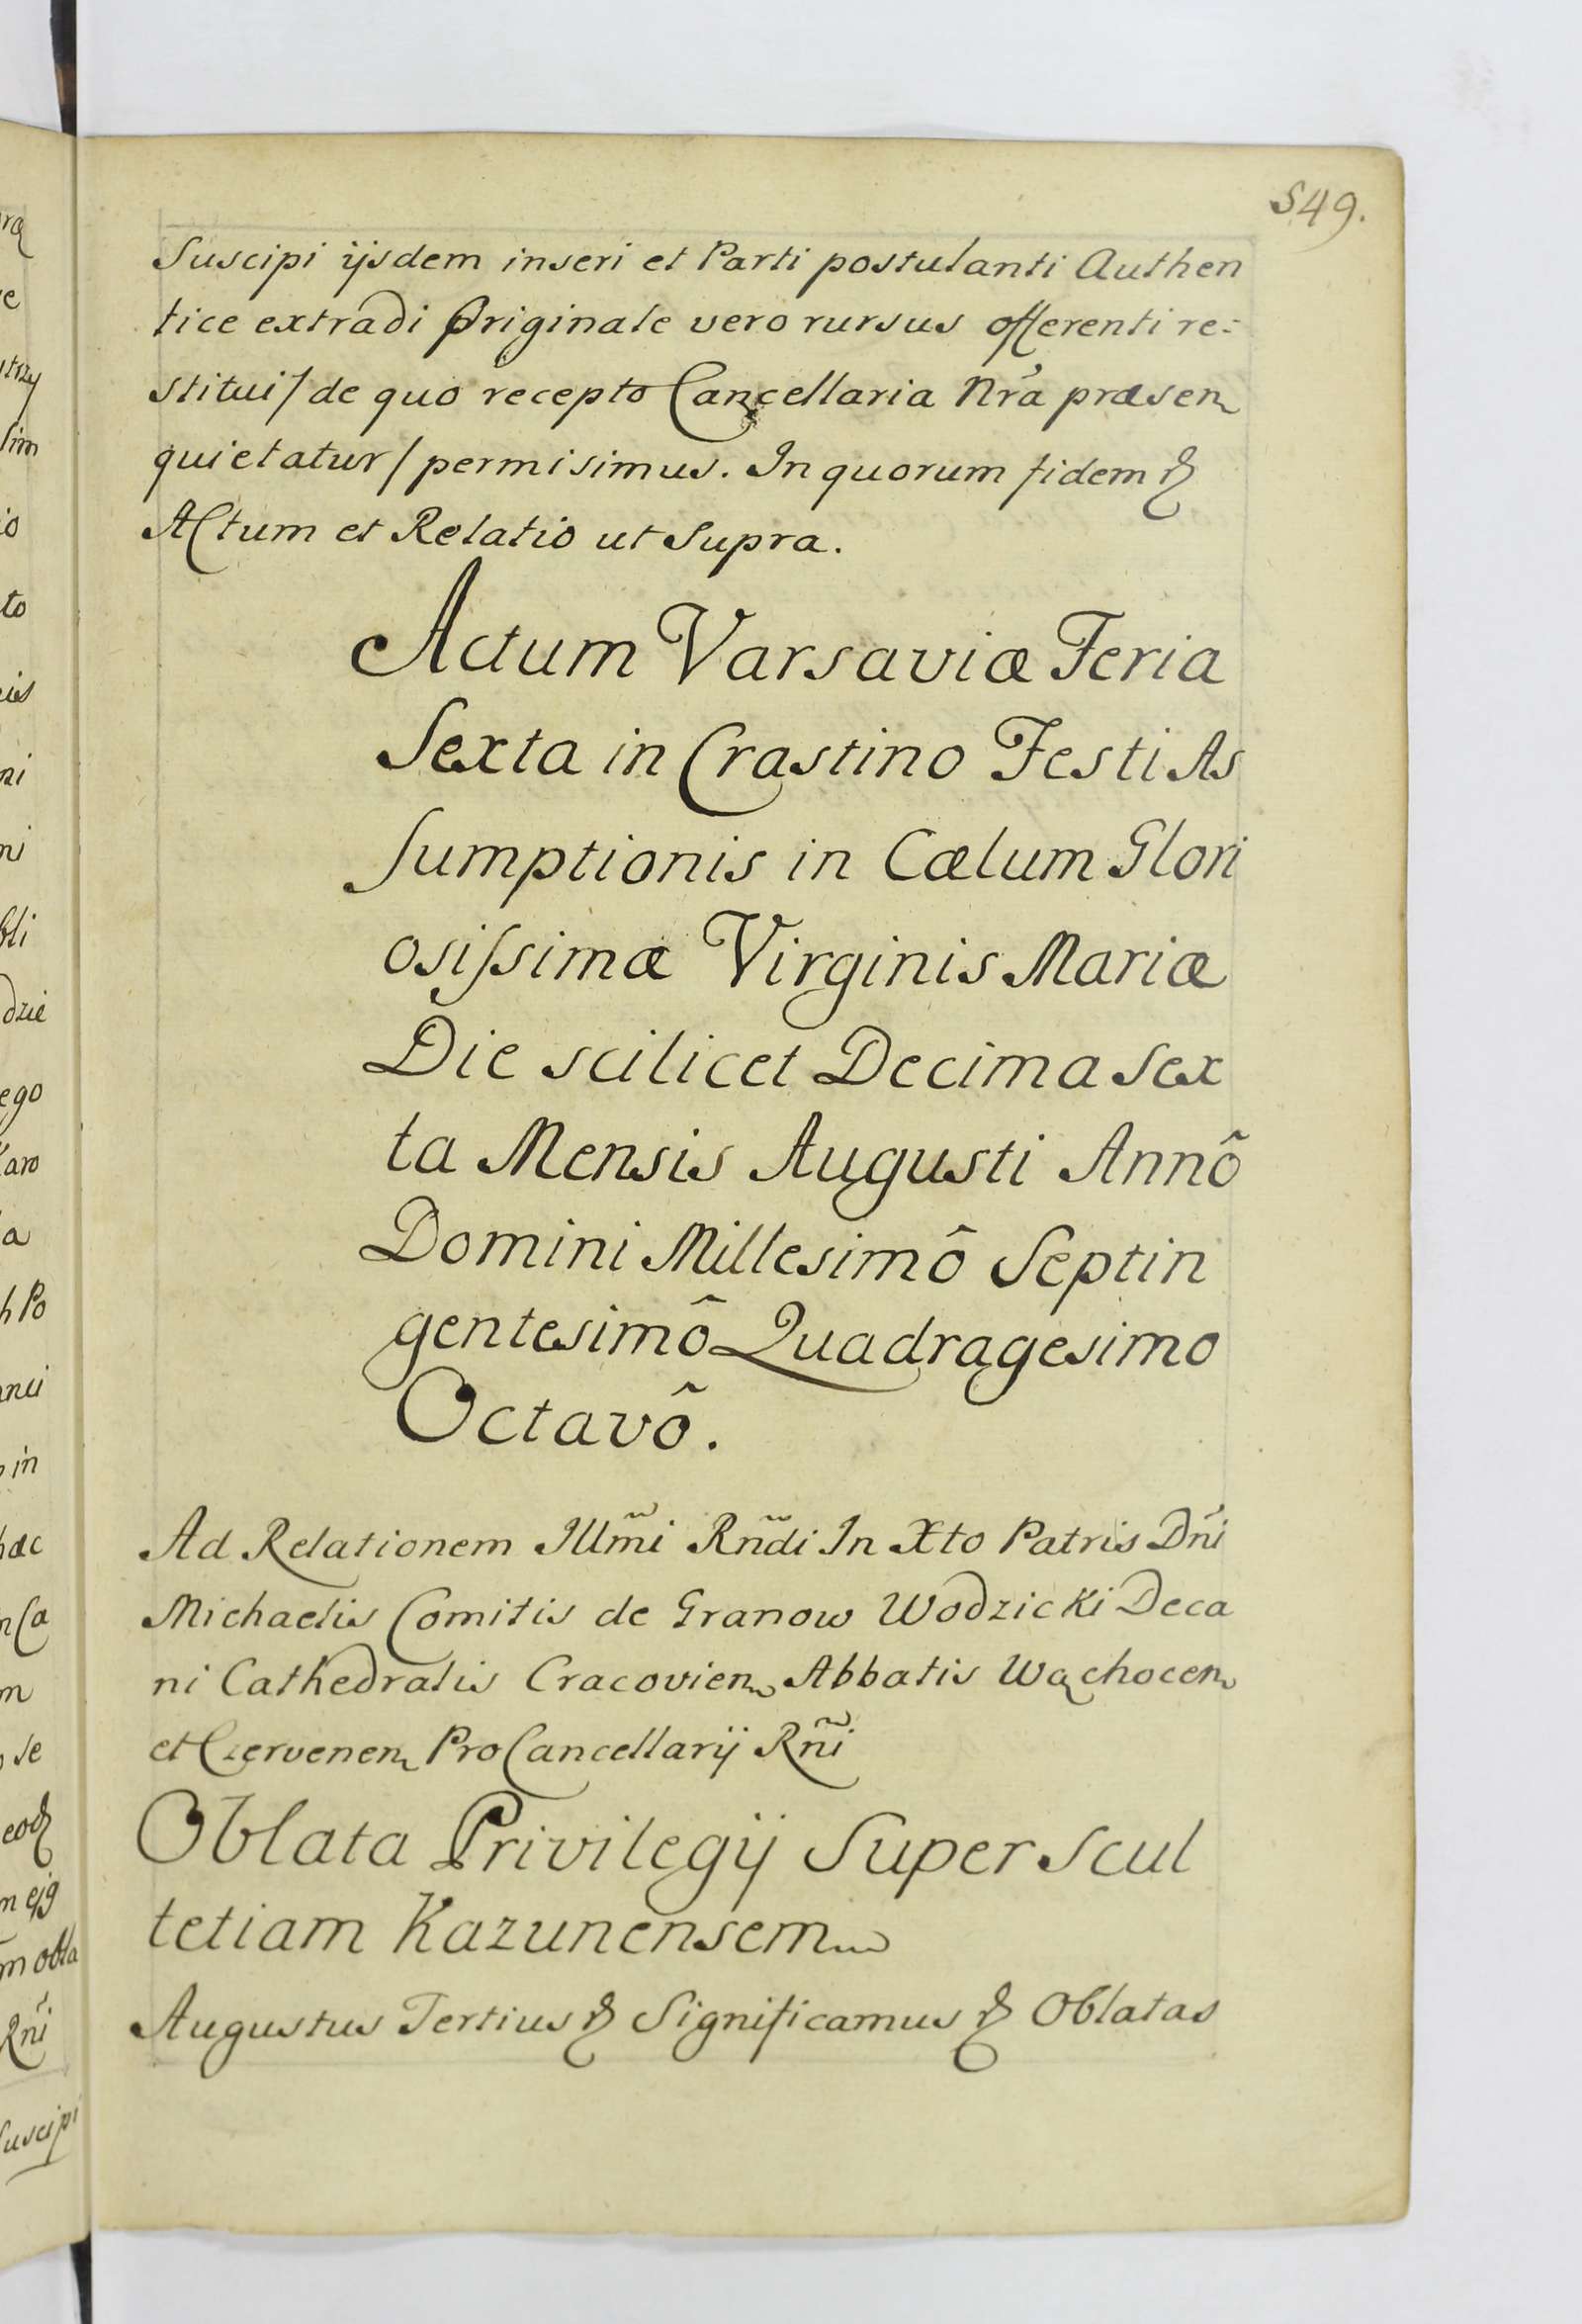 549.
Suscipi ijsdem inseri et Parti postulanti Authen
tice extradi Originale vero rursus offerenti re=
stitui / de quo recepto Cancellaria Nr̃a præsen
quietatur / permisimus. In quorum fidem &
Actum et Relatio ut Supra.
Actum Varsaviæ Feria
Sexta in Crastino Festi As
sumptionis in Cælum Glori
osissimæ Virginis Mariæ
Die scilicet Decima Sex
ta Mensis Augusti Annô
Domini Millesimô Septin
gentesimô Quadragesimo
Octavô.
Ad Relationem Illm̃i Rñdi In Xto Patris Dñi
Michaelis Comitis de Granow Wodzicki Deca
ni Cathedralis Cracovien Abbatis Wąchocen
et Czervenen ProCancellarij Rñi
Oblata Privilegij Super Scul
tetiam Kazunensem
Augustus Tertius & Significamus & Oblatas